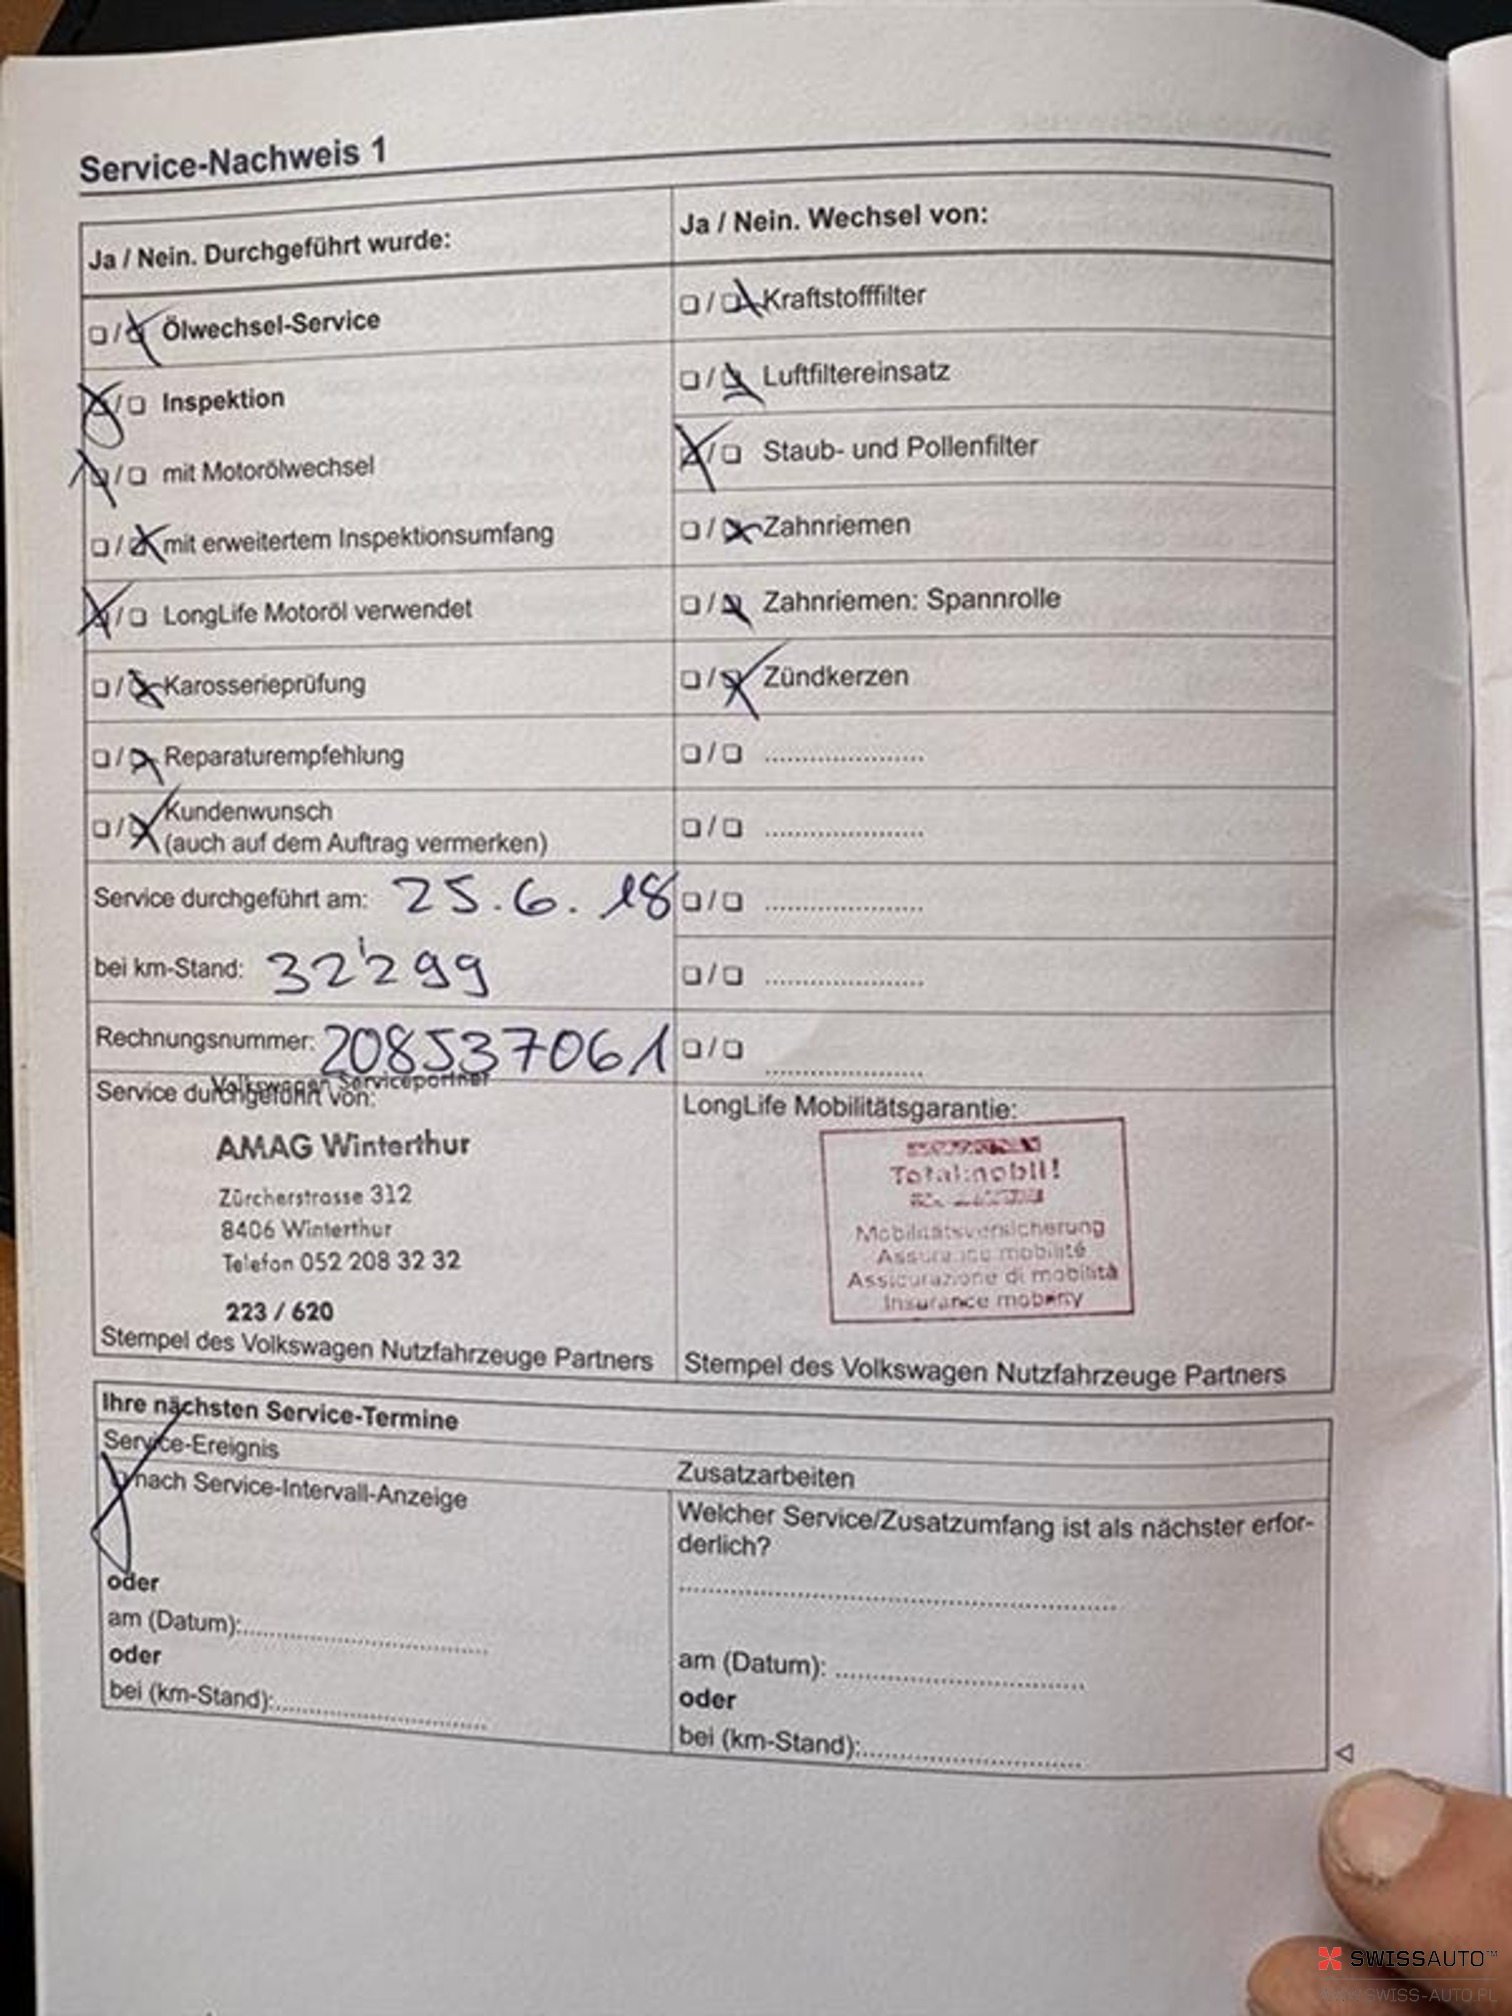 Service-Nachweis 1
Ja / Nein. Durchgeführt wurde:
❏ / ❏ Ölwechsel-Service
❏ / ❏ Inspektion
❏ / ❏ mit Motorölwechsel
❏ / ❏ mit erweitertem Inspektionsumfang
❏ / ❏ LongLife Motoröl verwendet
❏ / ❏ Karosserieprüfung
❏ / ❏ Reparaturempfehlung
❏ / ❏ Kundenwunsch
(auch auf dem Auftrag vermerken)
Service durchgeführt am: 25.6.18
bei km-Stand: 32'299
Rechnungsnummer: 208537061
Service durchgeführt von:
Volkswagen Servicepartner
AMAG Winterthur
Zürcherstrasse 312
8406 Winterthur
Telefon 052 208 32 32
223 / 620
Stempel des Volkswagen Nutzfahrzeuge Partners
Ja / Nein. Wechsel von:
❏ / ❏ Kraftstofffilter
❏ / ❏ Luftfiltereinsatz
❏ / ❏ Staub- und Pollenfilter
❏ / ❏ Zahnriemen
❏ / ❏ Zahnriemen: Spannrolle
❏ / ❏ Zündkerzen
❏ / ❏ ......................
❏ / ❏ ......................
❏ / ❏ ......................
❏ / ❏ ......................
❏ / ❏ ......................
LongLife Mobilitätsgarantie:
Totalmobil!
Mobilitätsversicherung
Assurance mobilité
Assicurazione di mobilità
Insurance mobility
Stempel des Volkswagen Nutzfahrzeuge Partners
Ihre nächsten Service-Termine
Service-Ereignis
❏ nach Service-Intervall-Anzeige
oder
am (Datum):..................................
oder
bei (km-Stand):..............................
Zusatzarbeiten
Welcher Service/Zusatzumfang ist als nächster erfor-
derlich?
............................................................
am (Datum): ..................................
oder
bei (km-Stand):..............................
SWISSAUTO™
WWW.SWISS-AUTO.PL